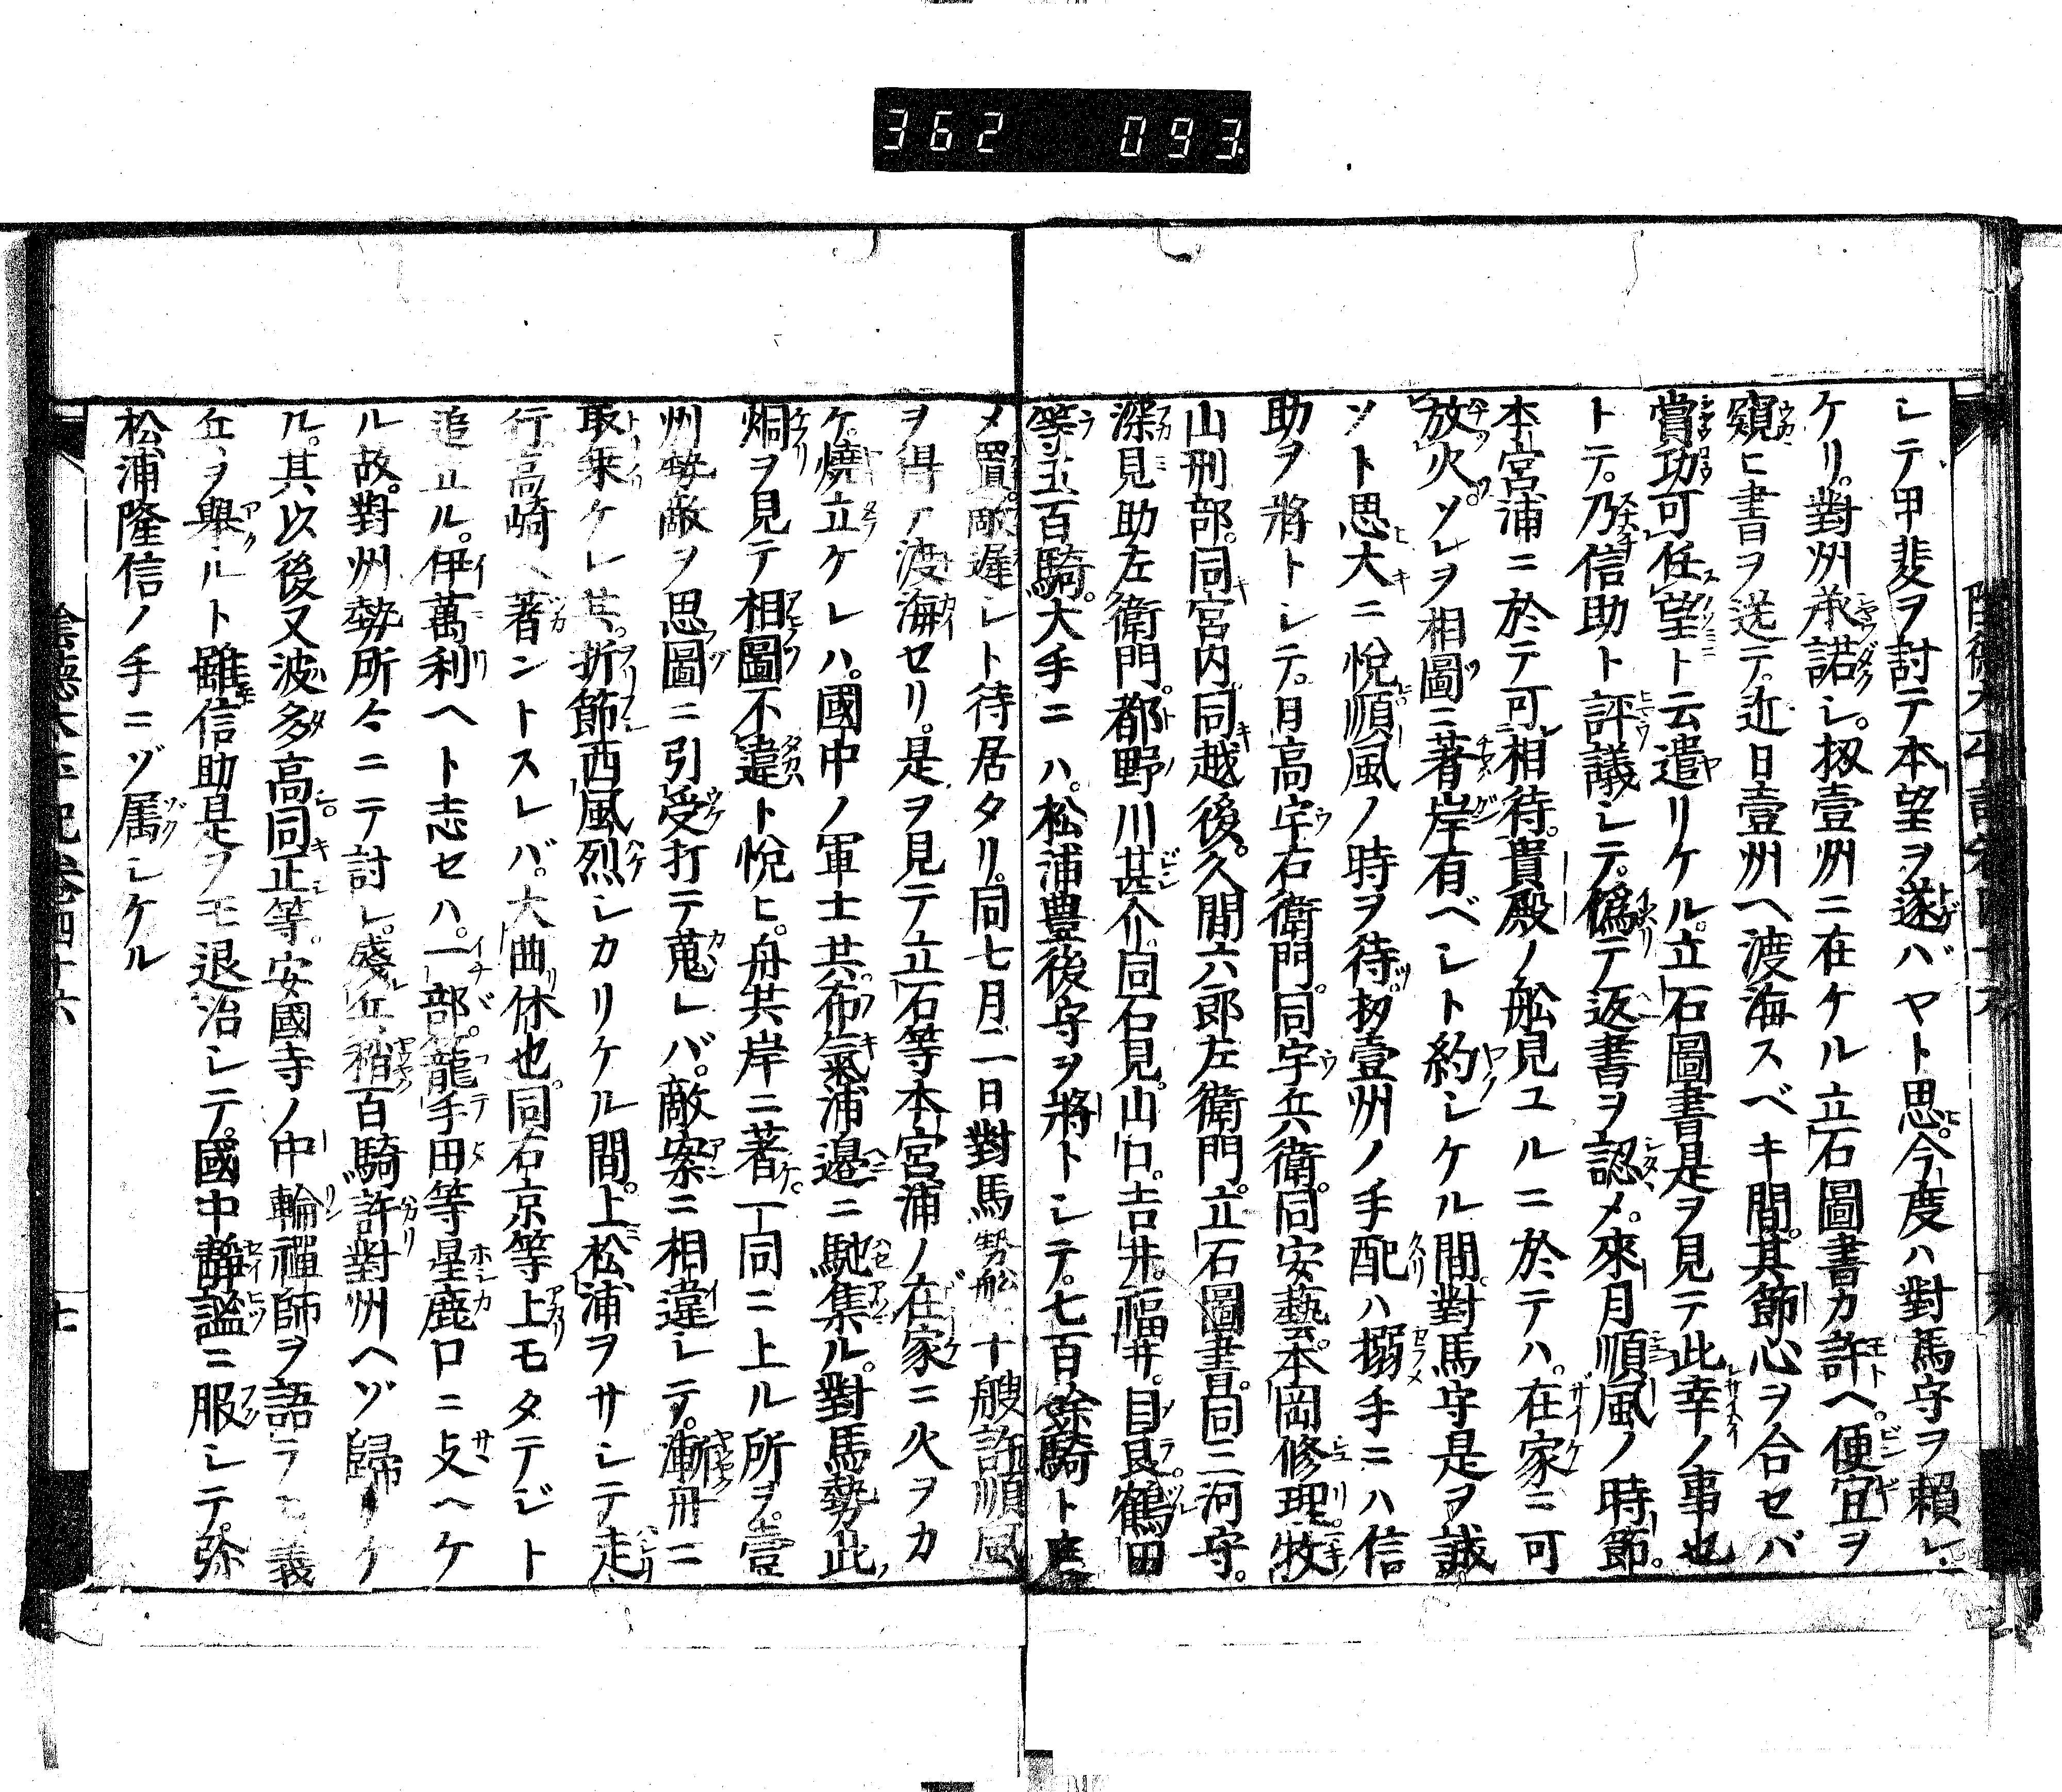 362 093
シテ甲斐ヲ討テ本望ヲ遂バヤト思ヒ。今度ハ對馬守ヲ頼レ
ケリ。對州承諾シ。扨壹州ニ在ケル立石圖書カ許ヘ。便宜ヲ
窺ヒ書ヲ送テ。近日壹州ヘ渡海スベキ間。其節心ヲ合セバ
賞功可任望ト云遣リケル。立石圖書是ヲ見テ此幸ノ事也
トテ。乃信助ト評議シテ。僞テ返書ヲ認メ。來月順風ノ時節。
本宮浦ニ於テ可相待。貴殿ノ舩見ユルニ於テハ。在家ニ可
放火。ソレヲ相圖ニ著岸有ベシト約シケル間。對馬守是ヲ誠
ソト思大ニ悅順風ノ時ヲ待。扨壹州ノ手配ハ搦手ニハ信
助ヲ將トシテ。月高宇右衛門。同宇兵衛。同安藝。本岡修理。牧
山刑部。同宮内。同越後。久間六郎左衛門。立石圖書。同三河守。
深見助左衛門。都野川甚介。同石見。山口。吉井。福井。目良。鶴田
等五百騎。大手ニハ。松浦豊後守ヲ將トシテ。七百余騎ト定
メ置。敵遲シト待居タリ。同七月二日對馬勢舩二十艘許順風
ヲ得テ渡海セリ。是ヲ見テ立石等本宮浦ノ在家ニ火ヲカ
ケ。燒立ケレハ。國中ノ軍士共。布氣浦邉ニ馳集ル。對馬勢此
烟ヲ見テ相圖不違ト悅ヒ。舟共岸ニ著ケ。一同ニ上ル所ヲ。壹
州勢敵ヲ思圖ニ引受打テ蒐レバ。敵案ニ相違シテ。漸舟ニ
取乗ケレ共。折節西風烈シカリケル間。上松浦ヲサシテ走
行。高崎ヘ著ントスレバ。大曲休也。同右京等上モタテジト
追立ル。伊萬利ヘト志セハ。一部。籠手田等星鹿口ニ支ヘケ
ル故。對州勢所々ニテ討レ。殘兵稍百騎許對州ヘゾ歸リケ
ル。其以後又波多高同正等。安國寺ノ中輪禪師ヲ語ラヒ義
兵ヲ舉ルト雖信助是ヲモ退治シテ。國中靜謐ニ服シテ。弥
松浦隆信ノ手ニゾ属シケル
陰德太平記卷四十六